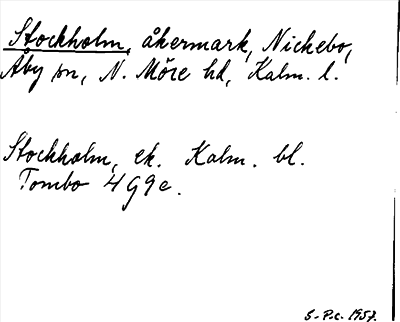 Stockholm, åkermark, Nickebo,
Åby sn, N. Möre hd, Kalm. l.
Stockholm, ek. Kalm. bl.
Tombo 4 G 9 e.
S-P.c. 1957.